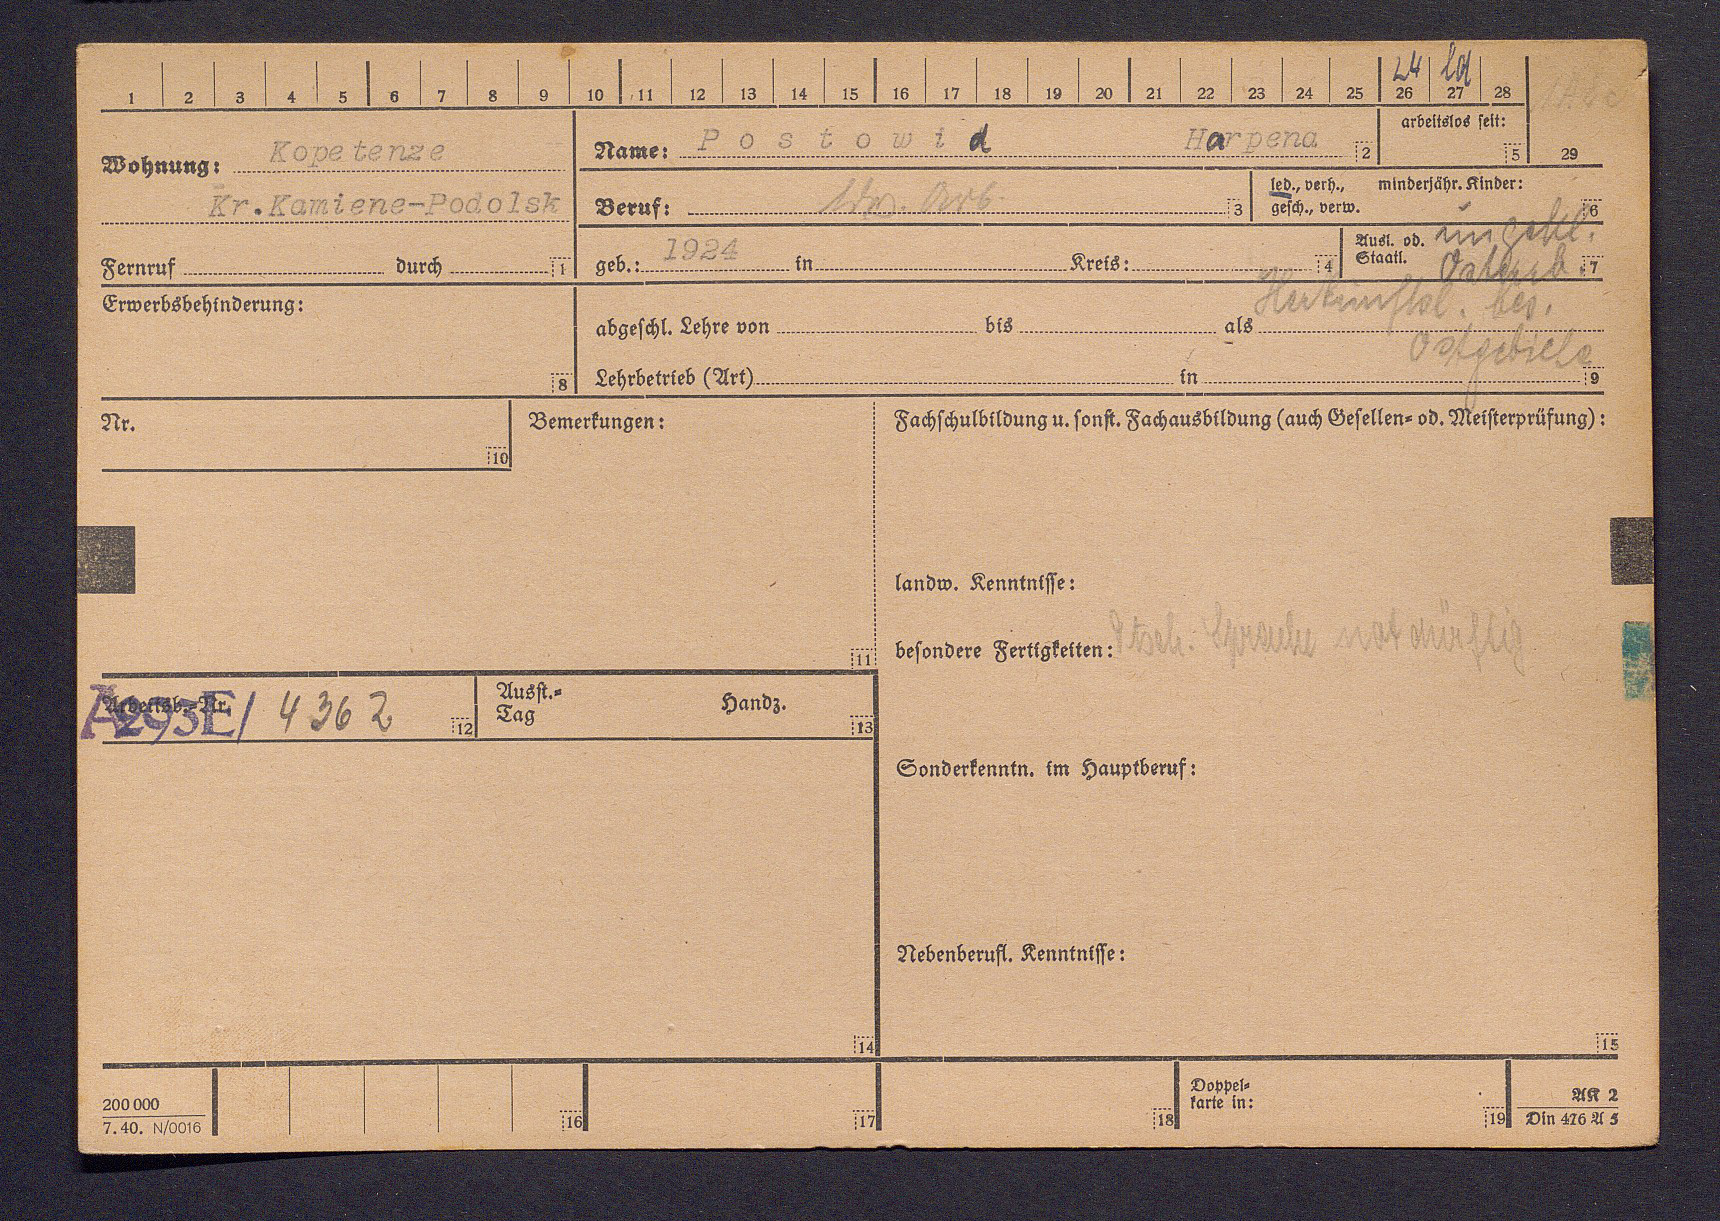 24 ld
1 2 3 4 5 6 7 8 9 10 11 12 13 14 15 16 17 18 19 20 21 22 23 24 25 26 27 28
29
Wohnung: Kopetenze
Kr.Kamiene-Podolsk
Fernruf durch 1
Name: Postowid Harpena 2
arbeitslos seit:
5
Beruf: ldw. Arb. 3
led., verh., minderjähr. Kinder:
gesch., verw. 6
geb.: 1924 in Kreis: 4
Ausl. od. ungekl.
Staatl. 7
Herkunftsl. bes.
Ostgebiete
Erwerbsbehinderung:
8
abgeschl. Lehre von bis als
Lehrbetrieb (Art) in 9
Nr.
10
Bemerkungen:
11
Fachschulbildung u. sonst. Fachausbildung (auch Gesellen= od. Meisterprüfung):
landw. Kenntnisse:
besondere Fertigkeiten: Dtsch. Sprache notdürftig
Arbeitsb.=Nr.
A293E/ 4362 12
Ausst.= Handz.
Tag 13
Sonderkenntn. im Hauptberuf:
Nebenberufl. Kenntnisse:
14
15
200 000
7. 40. N/0016
16
17
18
Doppel=
karte in:
19
AK 2
Din 476 A 5